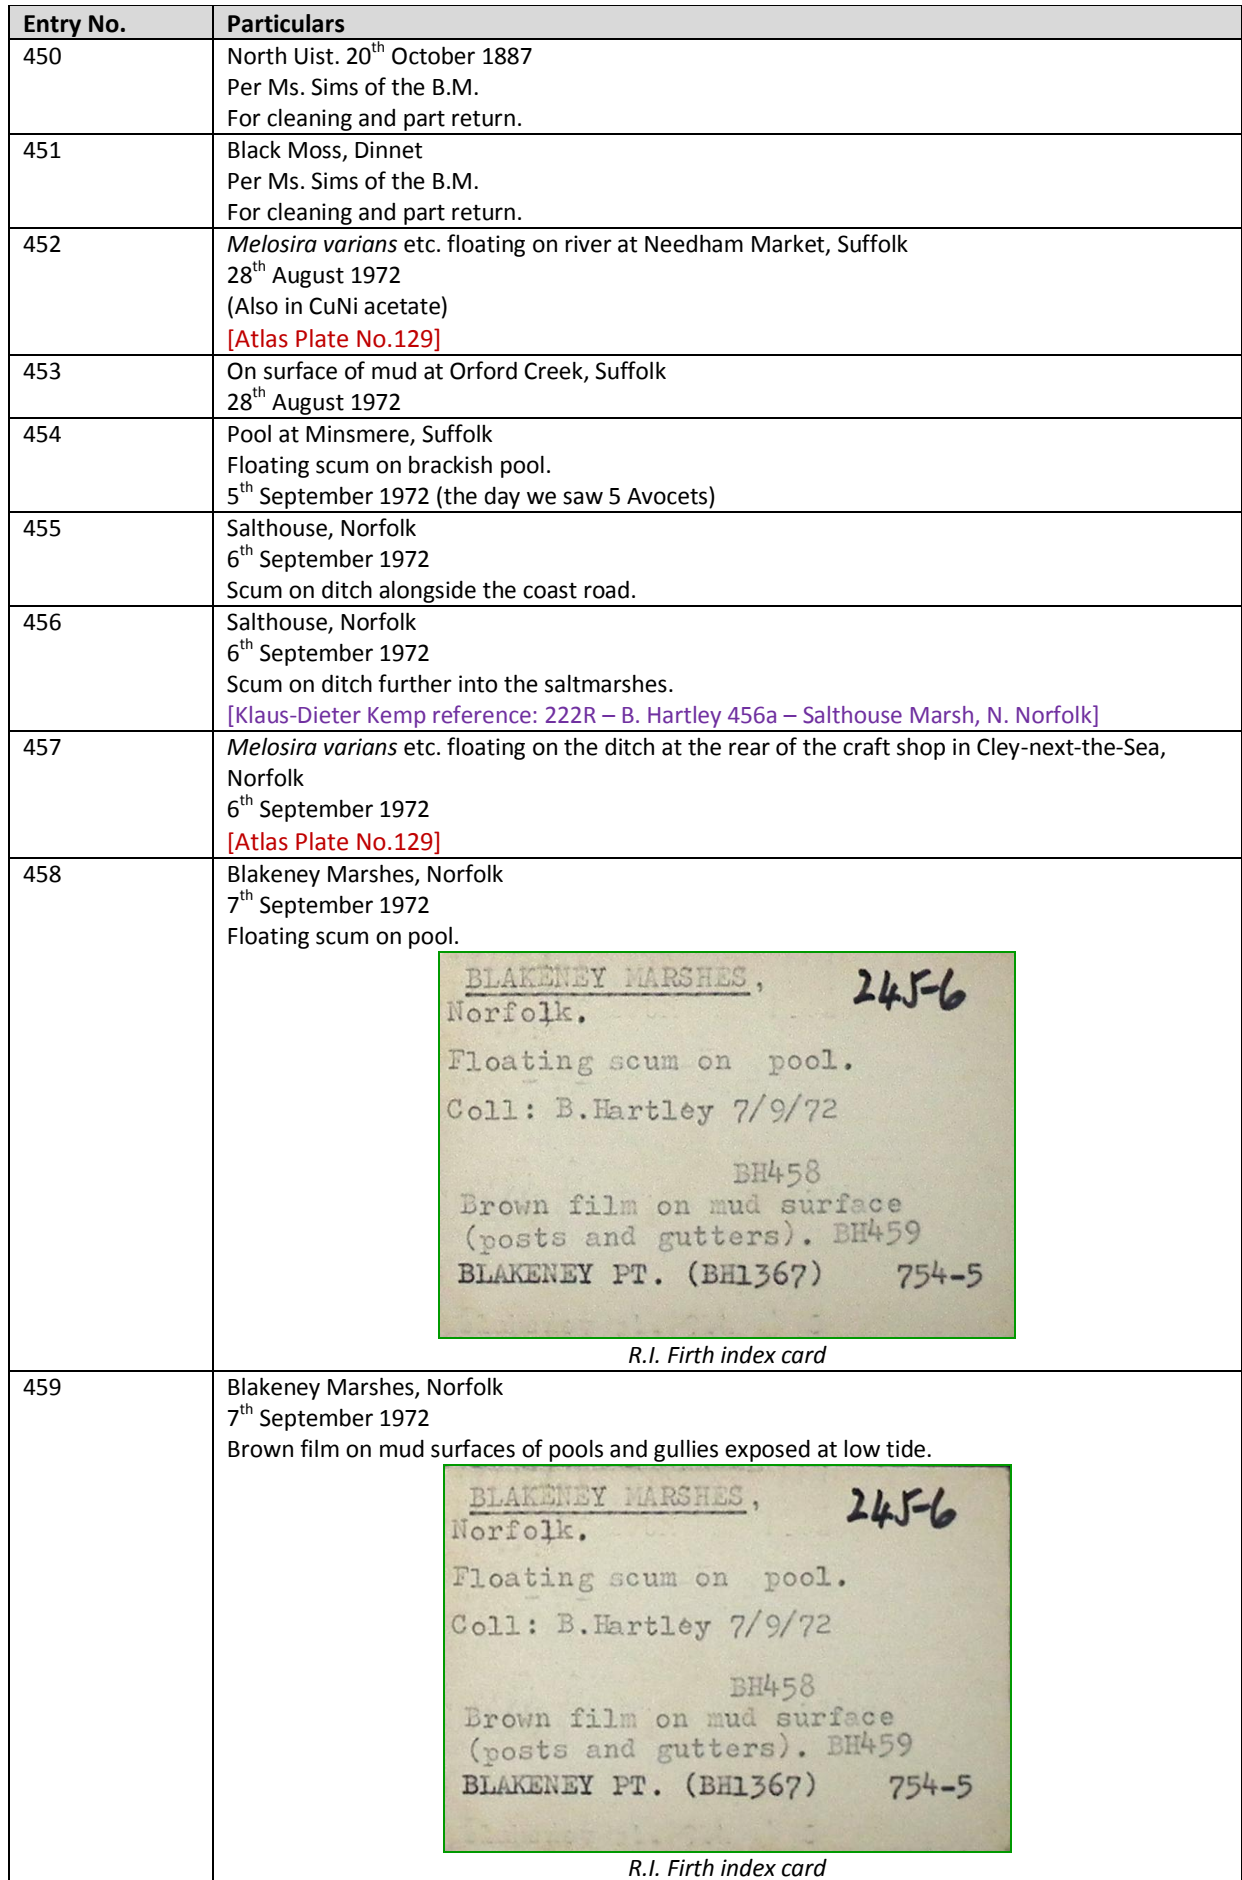 Entry No. Particulars
450 North Uist. 20th October 1887
Per Ms. Sims of the B.M.
For cleaning and part return.
451 Black Moss, Dinnet
Per Ms. Sims of the B.M.
For cleaning and part return.
452 Melosira varians etc. floating on river at Needham Market, Suffolk
28th August 1972
(Also in CuNi acetate)
[Atlas Plate No.129]
453 On surface of mud at Orford Creek, Suffolk
28th August 1972
454 Pool at Minsmere, Suffolk
Floating scum on brackish pool.
5th September 1972 (the day we saw 5 Avocets)
455 Salthouse, Norfolk
6th September 1972
Scum on ditch alongside the coast road.
456 Salthouse, Norfolk
6th September 1972
Scum on ditch further into the saltmarshes.
[Klaus-Dieter Kemp reference: 222R – B. Hartley 456a – Salthouse Marsh, N. Norfolk]
457 Melosira varians etc. floating on the ditch at the rear of the craft shop in Cley-next-the-Sea,
Norfolk
6th September 1972
[Atlas Plate No.129]
458 Blakeney Marshes, Norfolk
7th September 1972
Floating scum on pool.
BLAKENEY MARSHES, 245-6
Norfolk.
Floating scum on pool.
Coll: B.Hartley 7/9/72
BH458
Brown film on mud surface
(posts and gutters). BH459
BLAKENEY PT. (BH1367) 754-5
R.I. Firth index card
459 Blakeney Marshes, Norfolk
7th September 1972
Brown film on mud surfaces of pools and gullies exposed at low tide.
BLAKENEY MARSHES, 245-6
Norfolk.
Floating scum on pool.
Coll: B.Hartley 7/9/72
BH458
Brown film on mud surface
(posts and gutters). BH459
BLAKENEY PT. (BH1367) 754-5
R.I. Firth index card